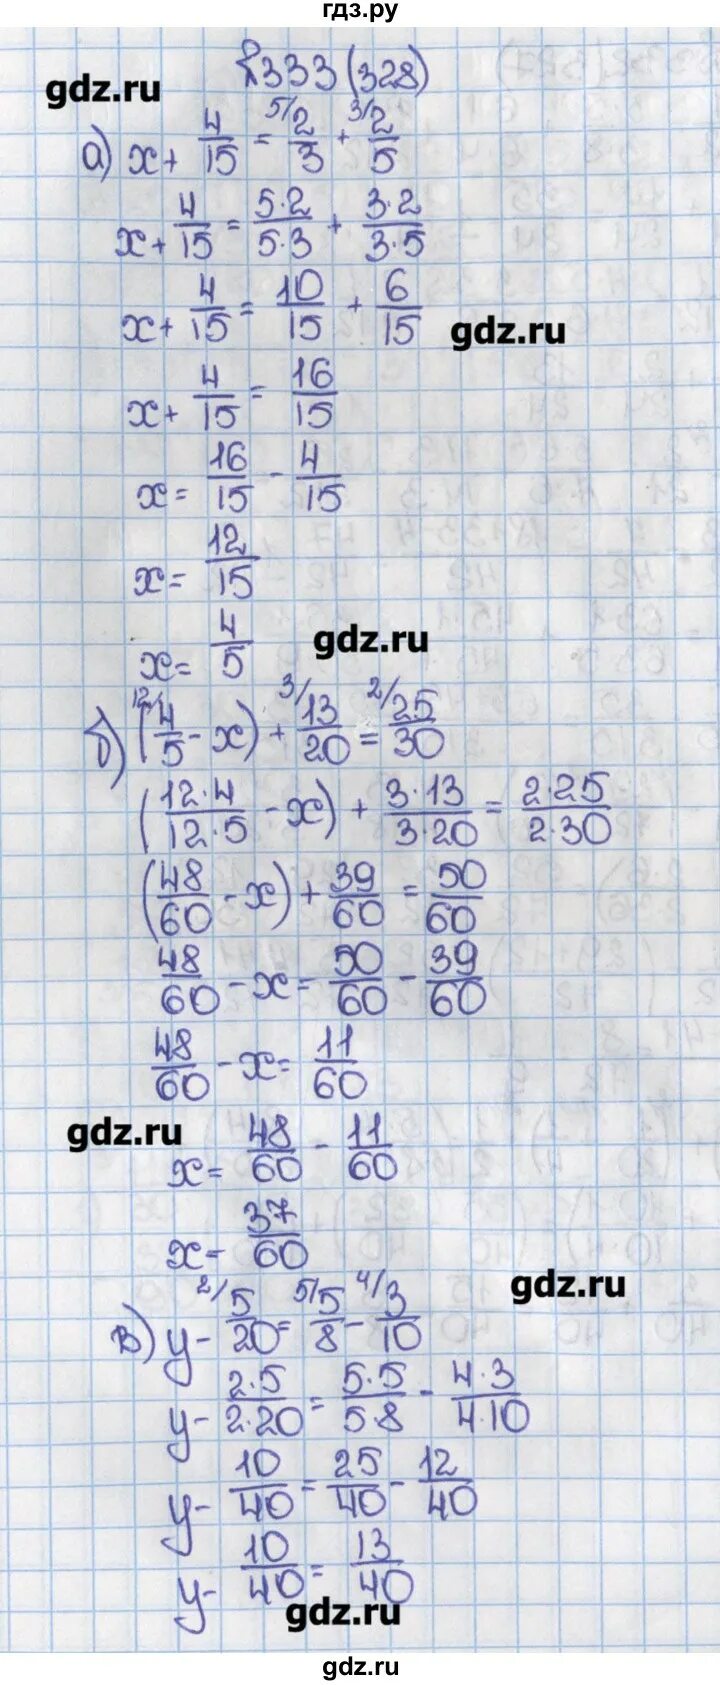 гдз.ру
№333(328)
gdz.ru
а) x + 4/15 = 5/ 2/3 + 3/ 2/5
x + 4/15 = 5·2/5·3 + 3·2/3·5
x + 4/15 = 10/15 + 6/15
gdz.ru
x + 4/15 = 16/15
x = 16/15 - 4/15
x = 12/15
x = 4/5
gdz.ru
б) (12/ 4/5 - x) + 3/ 13/20 = 2/ 25/30
(12·4/12·5 - x) + 3·13/3·20 = 2·25/2·30
(48/60 - x) + 39/60 = 50/60
48/60 - x = 50/60 - 39/60
48/60 - x = 11/60
gdz.ru
x = 48/60 - 11/60
x = 37/60
gdz.ru
в) y - 2/ 5/20 = 5/ 5/8 - 4/ 3/10
y - 2·5/2·20 = 5·5/5·8 - 4·3/4·10
y - 10/40 = 25/40 - 12/40
y - 10/40 = 13/40
gdz.ru
gdz.ru